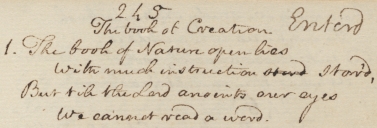 245
The book of Creation. Enter'd
1. The book of Nature open lies
With much instruction stor'd,
But till the Lord anoints our eyes
We cannot read a word.